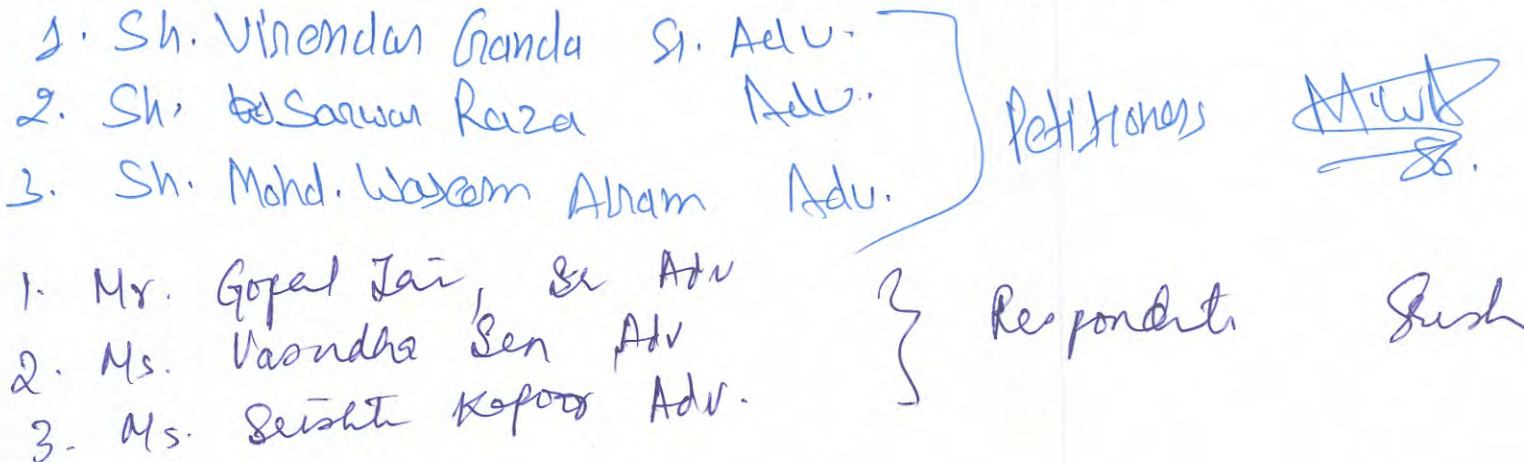 1. Sh. Virendar Ganda Sr. Adv.
2. Sh. Sarwar Raza Adv.
3. Sh. Mohd. Waseem Akram Adv.
Petitioners
1. Mr. Gopal Jain, Sr Adv
2. Ms. Vasundhra Sen Adv
3. Ms. Srishti Kapoor Adv.
Respondents